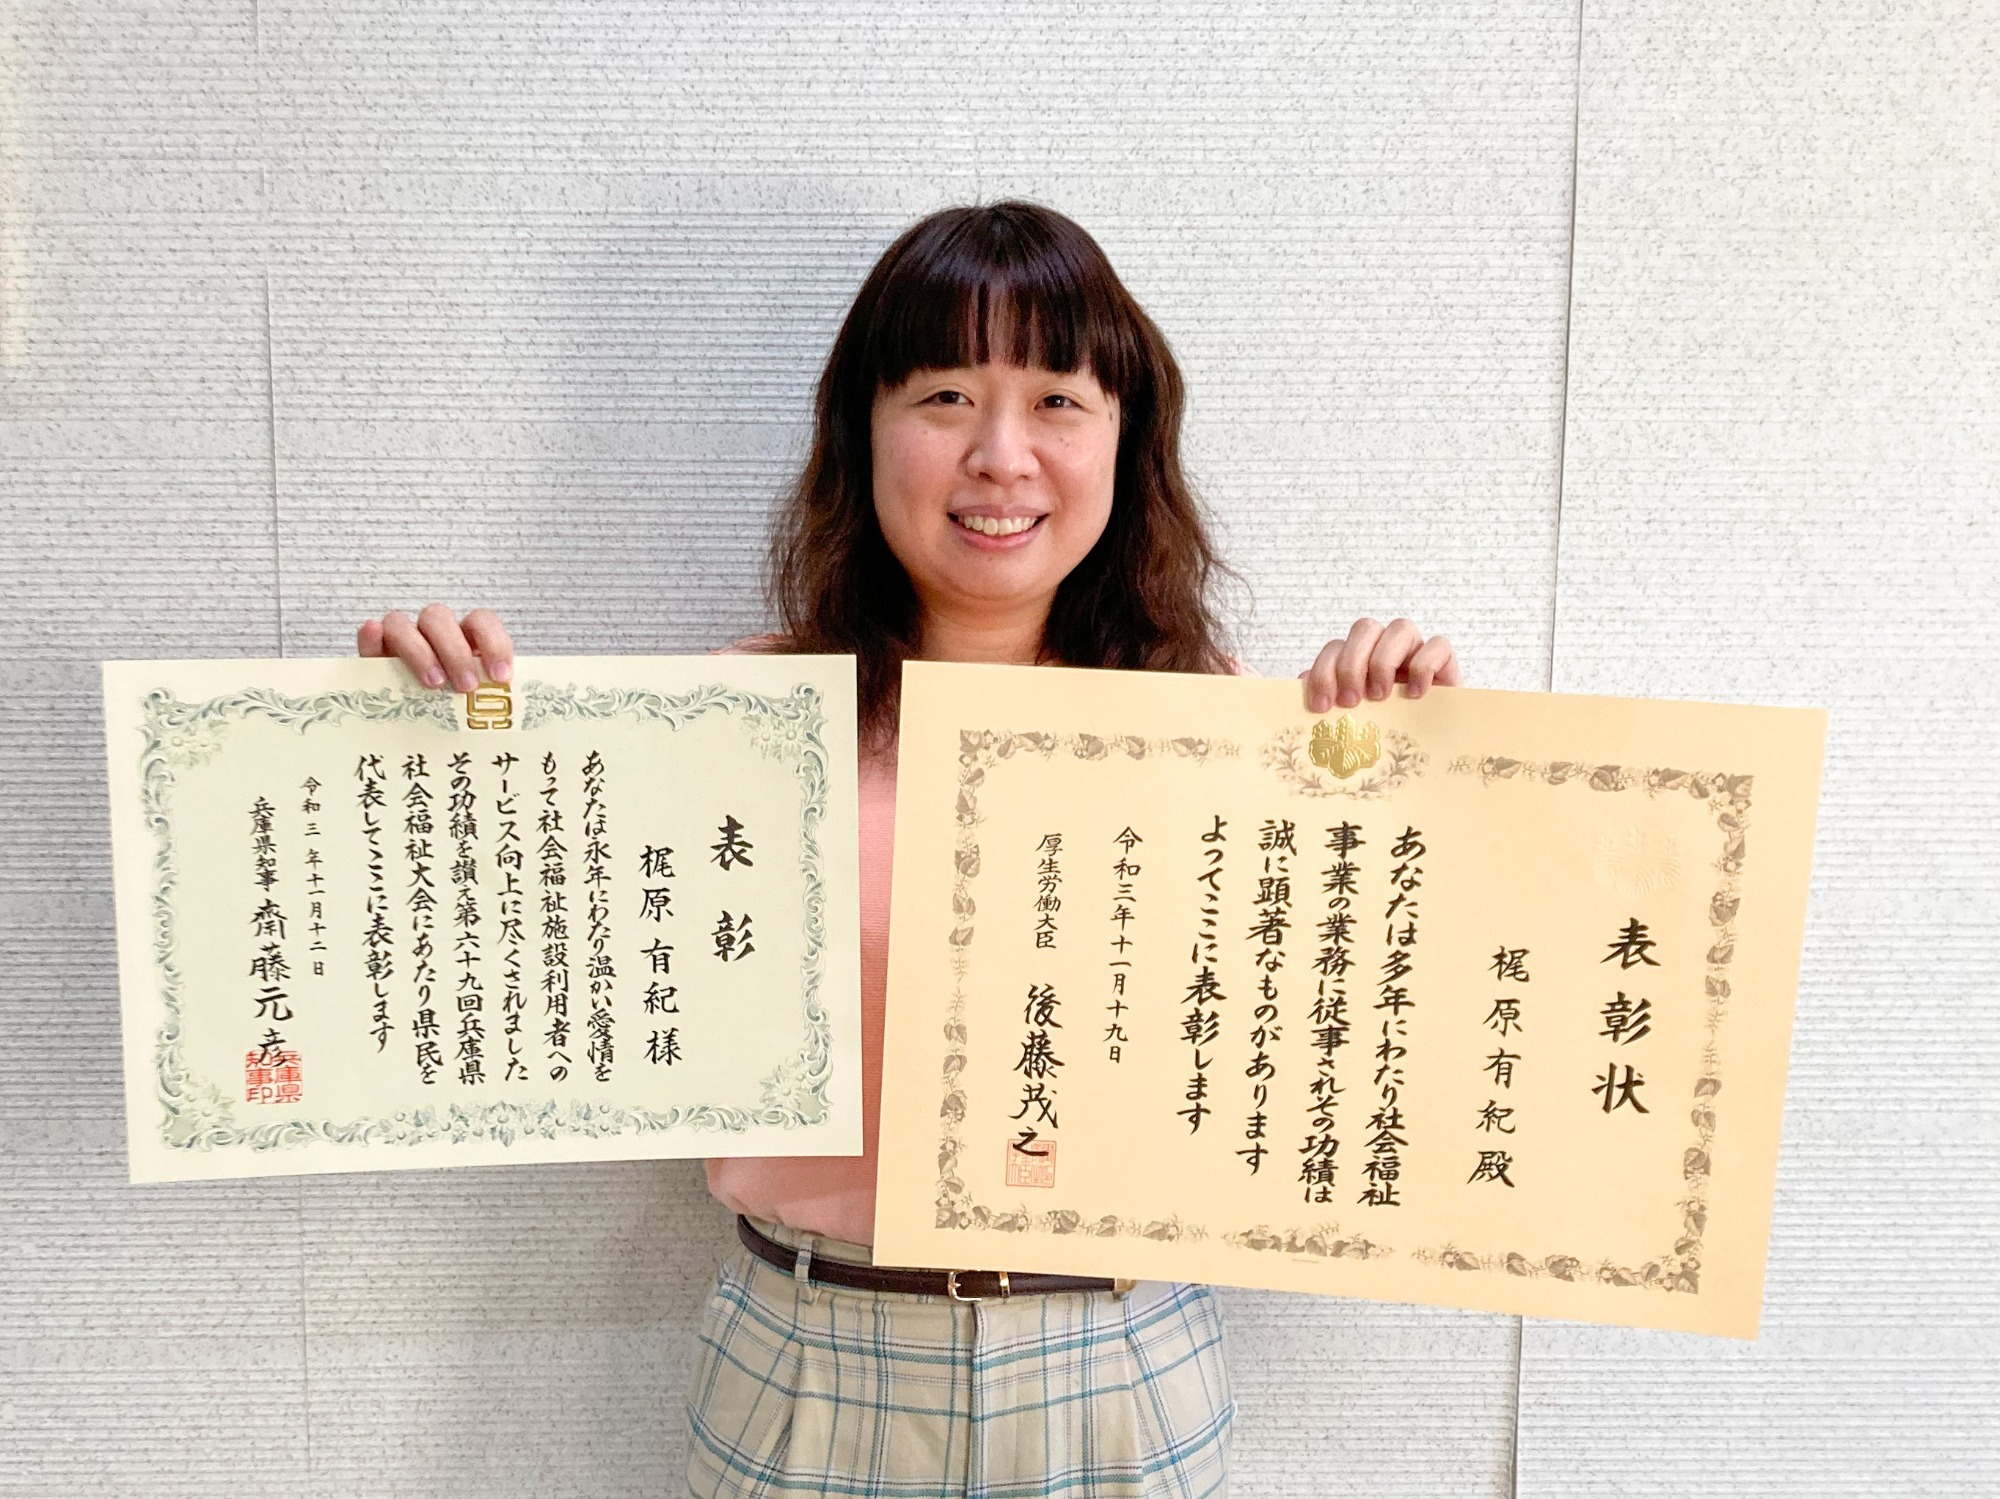 表彰
梶原有紀様
あなたは永年にわたり温かい愛情を
もって社会福祉施設利用者への
サービス向上に尽くされました
その功績を讃え第六十九回兵庫県
社会福祉大会にあたり県民を
代表してここに表彰します
令和三年十一月十二日
兵庫県知事 齋藤元彦
兵庫県
知事印
表彰状
梶原有紀殿
あなたは多年にわたり社会福祉
事業の業務に従事されその功績は
誠に顕著なものがあります
よってここに表彰します
令和三年十一月十九日
厚生労働大臣 後藤茂之